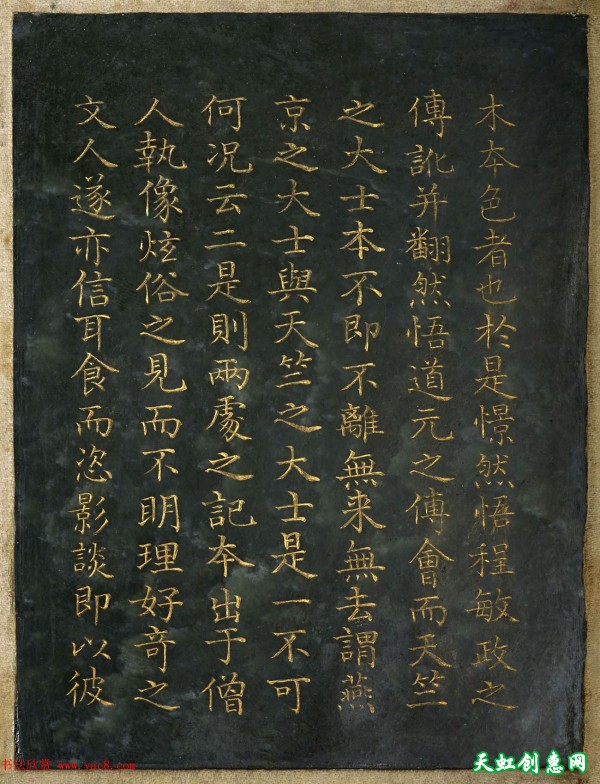 木本色者也於是憬然悟程敏政之
傳訛并翻然悟道元之傅會而天竺
之大士本不即不離無来無去謂燕
京之大士與天竺之大士是一不可
何况云二是則兩處之記本出于僧
人執像炫俗之見而不明理好奇之
文人遂亦信耳食而恣影談即以彼
天虹创惠网
www.yac8.com